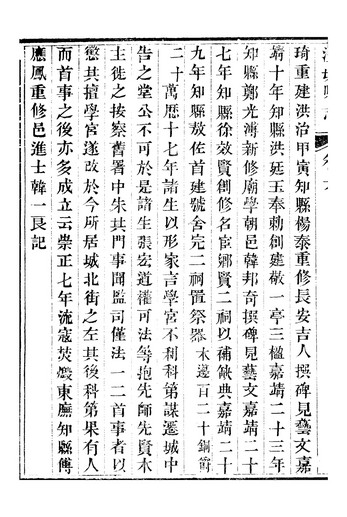 琦重建洪治甲寅知縣楊泰重修長安吉人撰碑見藝文嘉
靖十年知縣洪廷玉奉勅創建敬一亭三楹嘉靖二十三年
知縣鄭光溥新修廟學朝邑韓邦奇撰碑見藝文嘉靖二十
七年知縣徐效賢創修名宦鄉賢二祠以補缺典嘉靖二十
九年知縣敖佐首建號舍完二祠置祭器木籩百二十銅簠
二十萬歷十七年諸生以形家言學宮不利科第謀遷城中
告之堂公不可於是諸生張宏道權可法等抱先師先賢木
主徙之按察舊署中朱其門事聞監司僅法一二首事者以
懲其擅學宮遂改於今所居城北街之左其後科第果有人
而首事之後亦多成立云崇正七年流寇焚燬東廡知縣傅
應鳳重修邑進士韓一良記